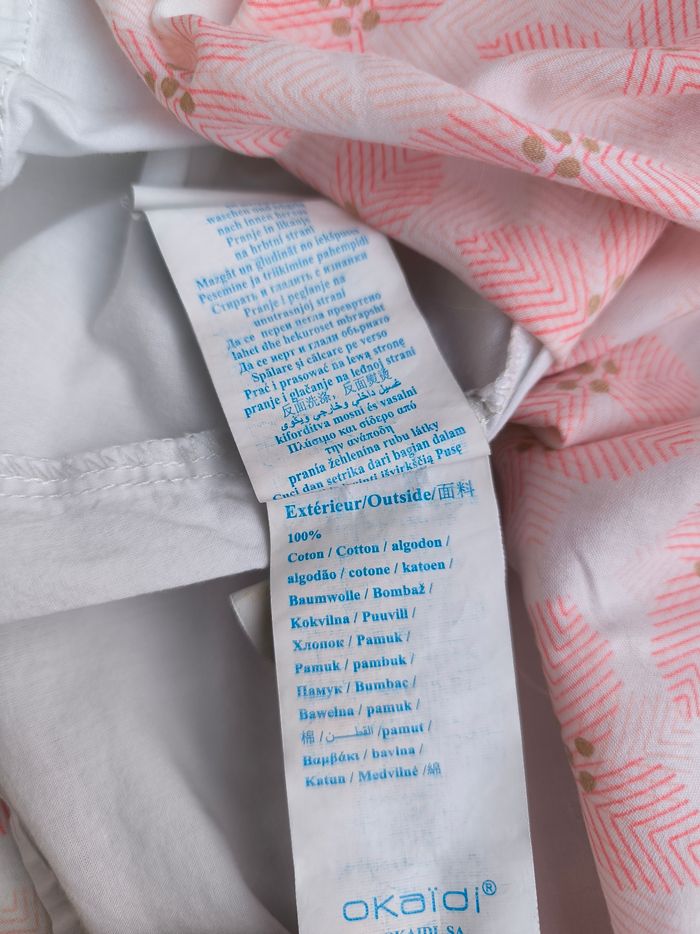 waschen und
nach innen
Pranje in likanje
na hrbtni strani
Mazgāt un gludināt no iekšpuses
Pesemine ja triikimine pahempidi
Стирать и гладить с изнанки
Pranje i peglanje na
unutrasnjoj strani
Да се пери пегла превртено
lahet dhe hekuroset mbrapsht
Да се пери и глади обърнато
Spălare și călcare pe verso
Prać i prasować na lewą stronę
pranje i glačanje na leđnoj strani
反面洗涤，反面熨烫
غسيل داخلي وخارجي ويكوى
kifordítva mosni és vasalni
Πλύσιμο και σίδερο από
την ανάποδη
prania žehlenina rubu látky
Cuci dan setrika dari bagian dalam
išvirkščią Pusę
Extérieur/Outside/面料
100%
Coton / Cotton / algodon /
algodão / cotone / katoen /
Baumwolle / Bombaž /
Kokvilna / Puuvill /
Хлопок / Pamuk /
Pamuk / pambuk /
Памук / Bumbac /
Bawełna / pamuk /
棉 / القطن /pamut /
Βαμβάκι / bavlna /
Katun / Medvilnė /綿
OKAÏDI®
OKAIDI SA